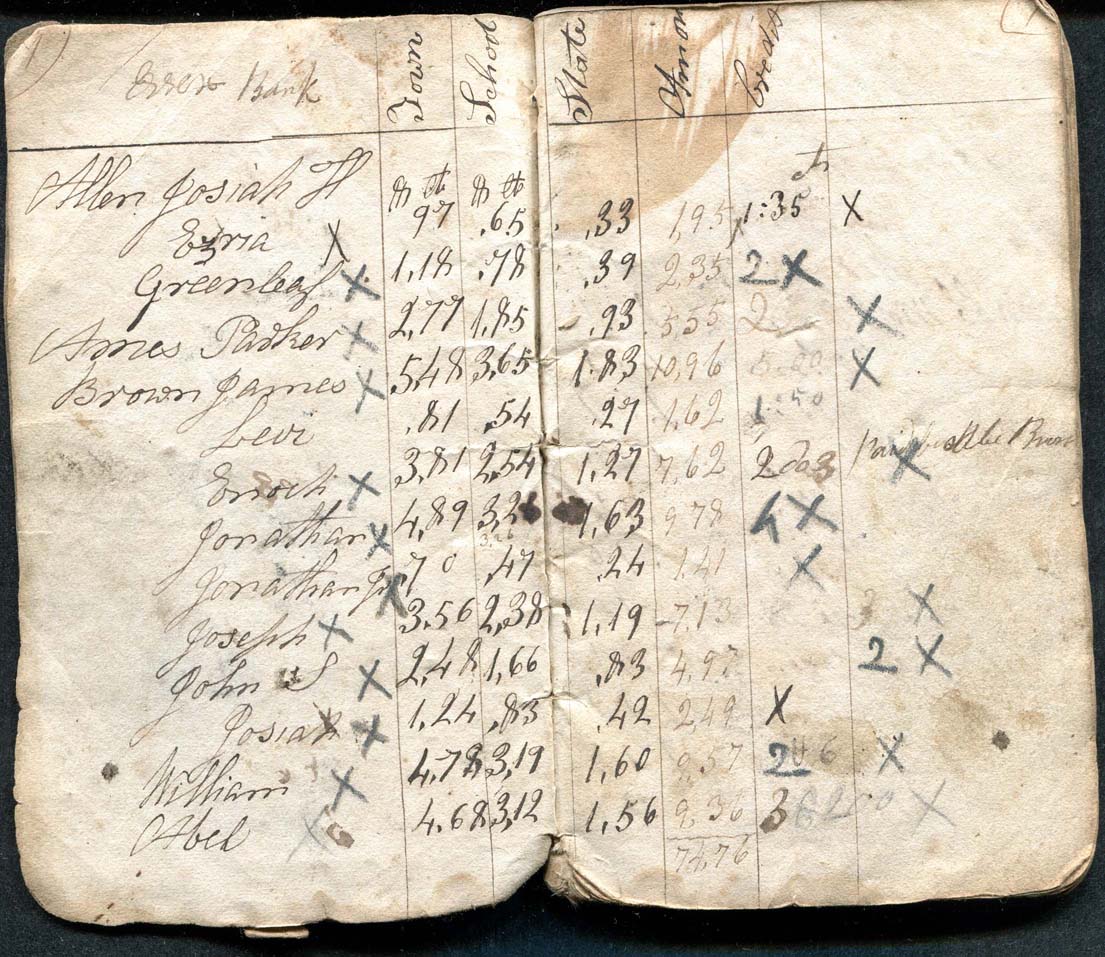 Bank Town School State Amou Credit
Allen Josiah H 97 .65 .33 1,95 1:35 X
Ezria X 1,18 .78 .39 2,35 2 X
Greenleaf X 2,77 1,85 .93 5,55 2 X
Ames Parker X 5,48 3,65 1.83 10,96 X
Brown James X .81 .54 .27 1,62 1:50
Levi 3,81 2,54 1,27 7,62 2 X
Enoch X 4,89 3,2 1,63 9 78 4 X
Jonathan X 70 .47 .24 1.41 X
Jonathan Jr X 3.56 2,38 1,19 7.13 X
Joseph X 2,48 1,66 .83 4,97 2 X
John S X 1,24 .83 .42 2,49 X
Josiah X 4,78 3,19 1,60 9,57 2 X
William X 4.68 3,12 1,56 9,36 3 X
Abel X 74,76